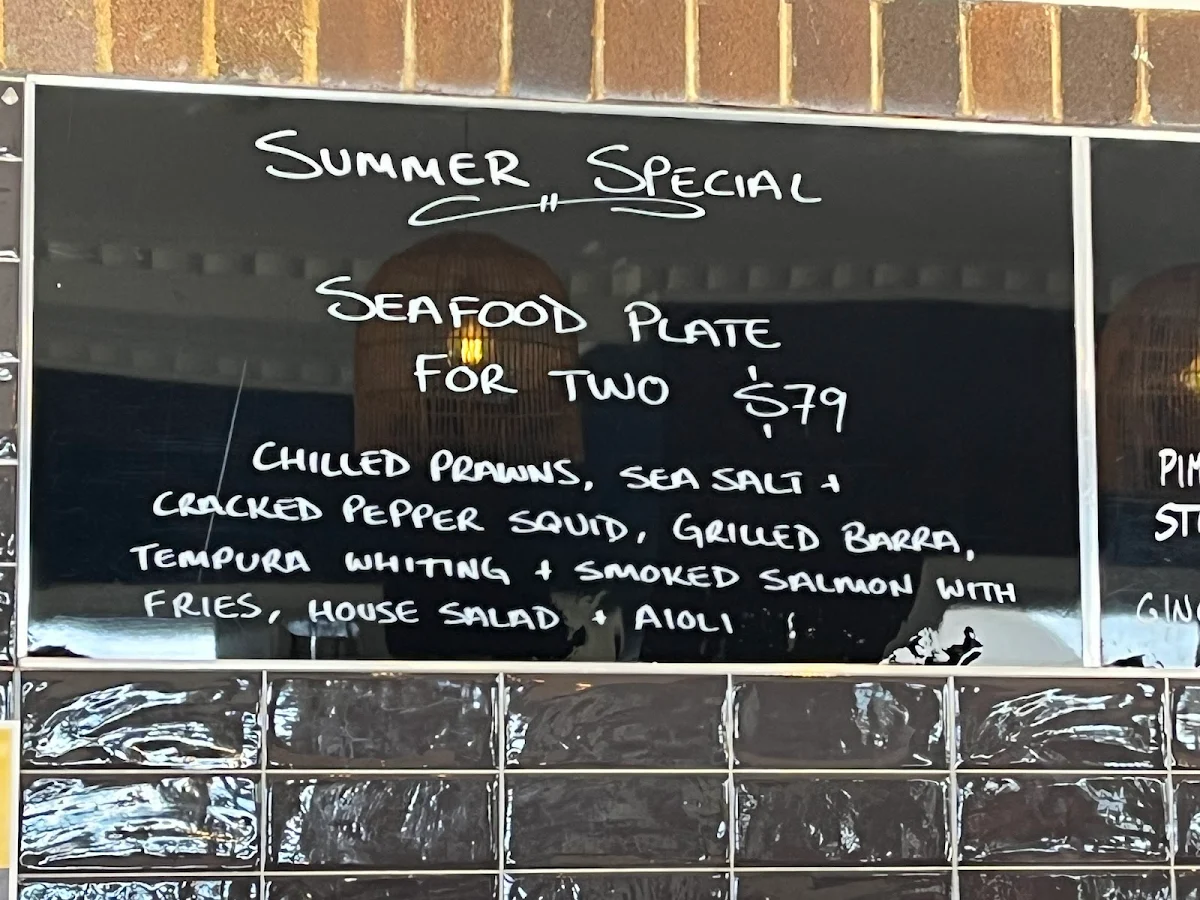 SUMMER SPECIAL
SEAFOOD PLATE
FOR TWO $79
CHILLED PRAWNS, SEA SALT +
CRACKED PEPPER SQUID, GRILLED BARRA,
TEMPURA WHITING + SMOKED SALMON WITH
FRIES, HOUSE SALAD + AIOLI